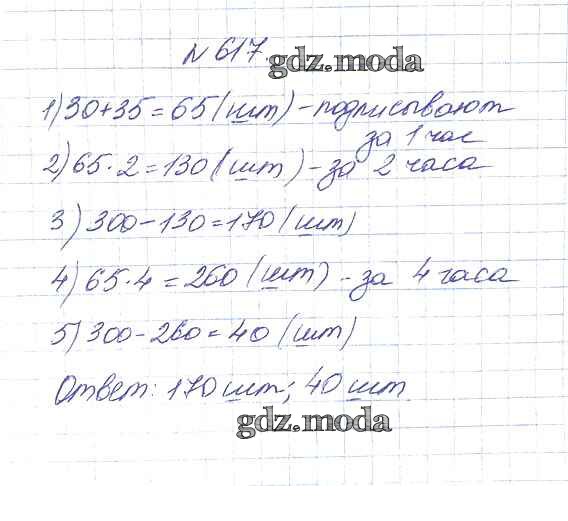 № 617.
gdz.moda
1) 30+35=65 (шт) - подписывают
за 1 час
2) 65·2=130 (шт) - за 2 часа
3) 300-130=170 (шт)
4) 65·4=260 (шт) - за 4 часа
5) 300-260=40 (шт)
Ответ: 170 шт; 40 шт.
gdz.moda